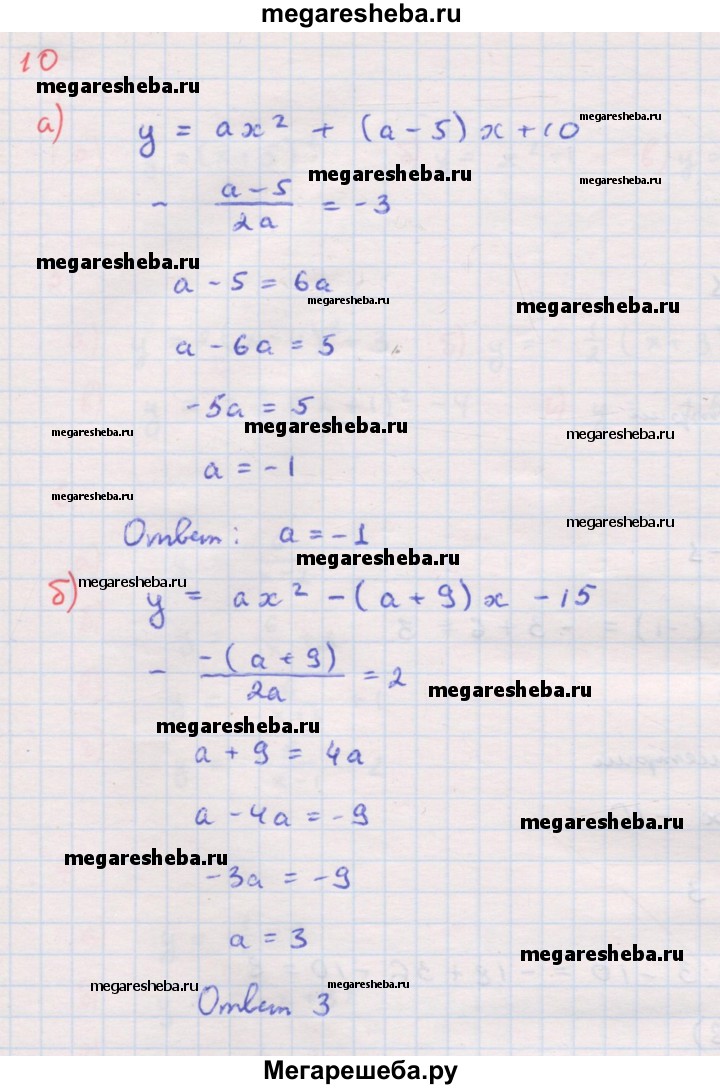 megaresheba.ru
10
megaresheba.ru
а) y = ax² + (a - 5) x + 10
megaresheba.ru
megaresheba.ru
megaresheba.ru
- (a - 5)/2a = - 3
megaresheba.ru
a - 5 = 6a
megaresheba.ru
megaresheba.ru
a - 6a = 5
-5a = 5
megaresheba.ru
megaresheba.ru
megaresheba.ru
a = - 1
megaresheba.ru
megaresheba.ru
Ответ: a = - 1
megaresheba.ru
б) y = ax² - (a + 9) x - 15
megaresheba.ru
- -(a + 9)/2a = 2
megaresheba.ru
megaresheba.ru
a + 9 = 4a
a - 4a = - 9
megaresheba.ru
megaresheba.ru
-3a = -9
a = 3
megaresheba.ru
megaresheba.ru
megaresheba.ru
Ответ 3
Мегарешеба.ру